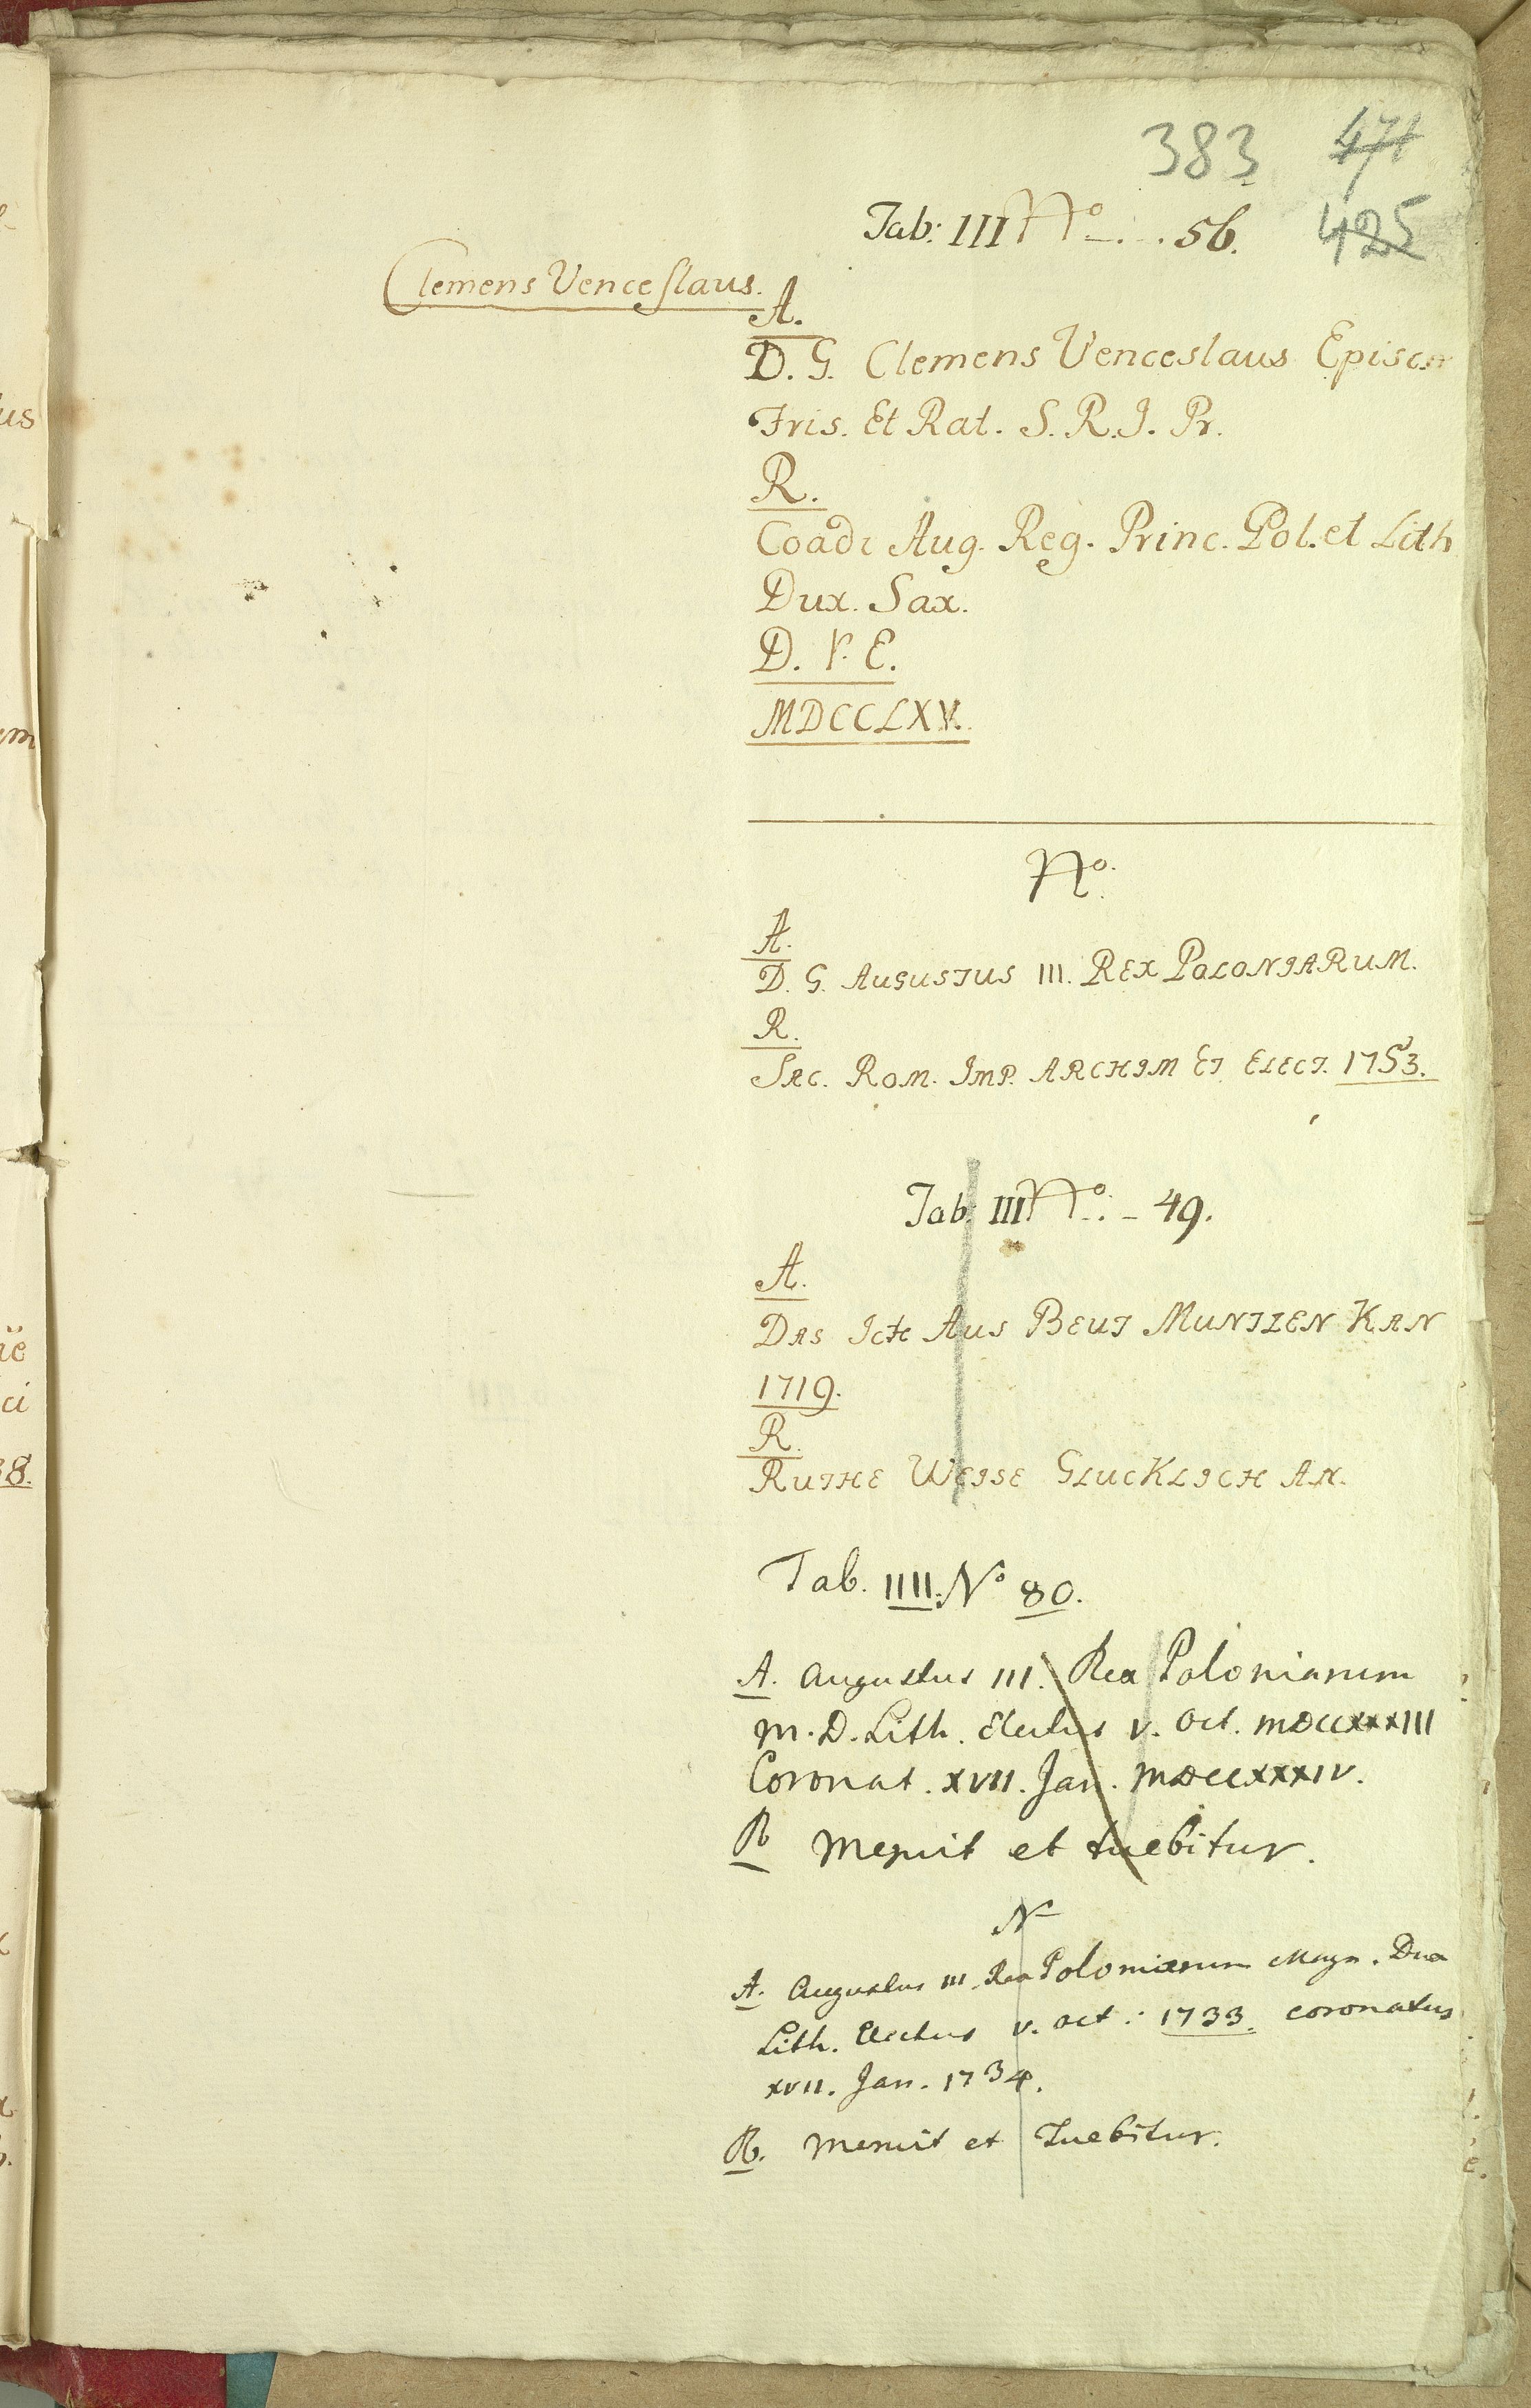 383 471
425
Tab: III No. 56.
Clemens Venceslaus.
A.
D. G. Clemens Venceslaus Episc
Fris. Et Rat. S. R. I. Pr.
R.
Coadi Aug. Reg. Princ. Pol. et Lith
Dux. Sax.
D. V. E.
MDCCLXV.
No.
A.
D. G. AUGUSTUS III. REX POLONIARUM.
R.
SAC. ROM. IMP. ARCHIM ET ELECT. 1753.
Tab: III No. - 49.
A.
DAS ICH AUS BEUT MUNTZEN KAN
1719.
R.
RUTHE WEISE GLUCKLICH AN.
Tab. IIII. No 80.
A. Augustus III. Rex Poloniarum
M. D. Lith. Electus V. Oct. MDCCXXXIII
Coronat. XVII. Jan. MDCCXXXIV.
R Meruit et tuebitur.
N
A. Augustus III. Rex Poloniarum Magn. Dux
Lith. Electus V. Oct: 1733. coronatus
XVII. Jan. 1734.
R. Meruit et Tuebitur.